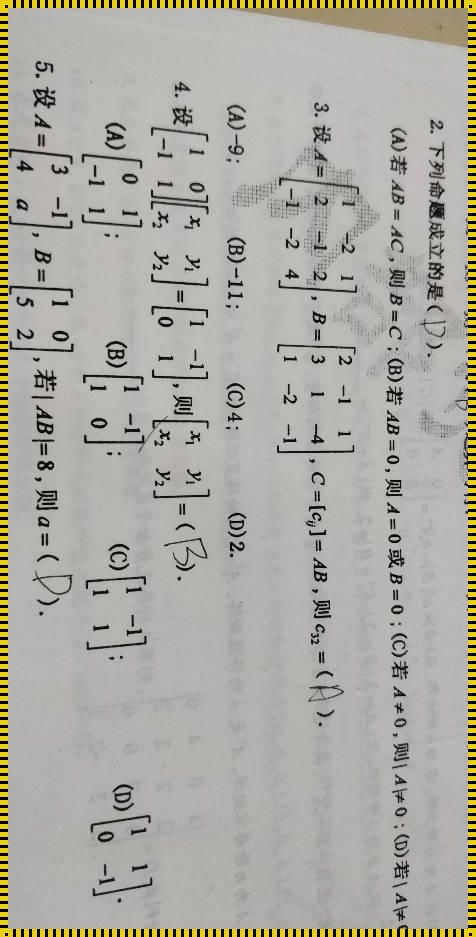 2. 下列命题成立的是( D ).
(A)若 AB=AC, 则 B=C; (B)若 AB=0, 则 A=0 或 B=0; (C)若 A≠0, 则|A|≠0; (D)若|A|≠0
3. 设 A=[1 -2 1; 2 -1 2; -1 -2 4], B=[2 -1 1; 3 1 -4; 1 -2 -1], C=[c_ij]=AB, 则 c_32=( A ).
(A)-9; (B)-11; (C)4; (D)2.
4. 设[1 0; -1 1][x_1 y_1; x_2 y_2]=[1 -1; 0 1], 则[x_1 y_1; x_2 y_2]=( B ).
(A)[0 1; -1 1]; (B)[1 -1; 1 0]; (C)[1 -1; 1 1]; (D)[1 1; 0 -1].
5. 设 A=[3 -1; 4 a], B=[1 0; 5 2], 若|AB|=8, 则 a=( D ).